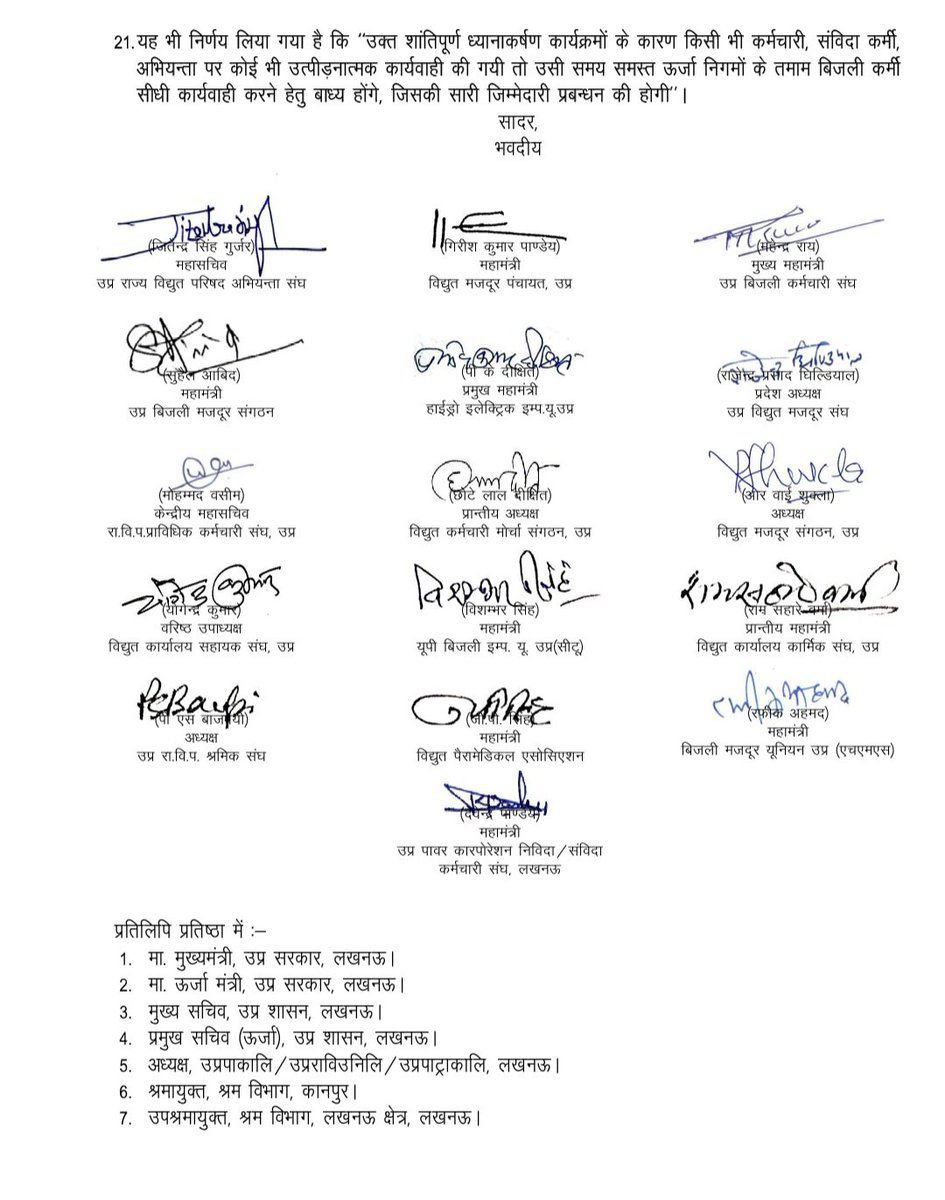 21. यह भी निर्णय लिया गया है कि "उक्त शांतिपूर्ण ध्यानाकर्षण कार्यक्रमों के कारण किसी भी कर्मचारी, संविदा कर्मी,
अभियन्ता पर कोई भी उत्पीड़नात्मक कार्यवाही की गयी तो उसी समय समस्त ऊर्जा निगमों के तमाम बिजली कर्मी
सीधी कार्यवाही करने हेतु बाध्य होंगे, जिसकी सारी जिम्मेदारी प्रबन्धन की होगी"।
सादर,
भवदीय
(जितेन्द्र सिंह गुर्जर) (गिरीश कुमार पाण्डेय) (महेन्द्र राय)
महासचिव महामंत्री मुख्य महामंत्री
उप्र राज्य विद्युत परिषद अभियन्ता संघ विद्युत मजदूर पंचायत, उप्र उप्र बिजली कर्मचारी संघ
(सुहैल आबिद) (पी के दीक्षित) (राजेन्द्र प्रसाद घिल्डियाल)
महामंत्री प्रमुख महामंत्री प्रदेश अध्यक्ष
उप्र बिजली मजदूर संगठन हाईड्रो इलेक्ट्रिक इम्प.यू.उप्र उप्र विद्युत मजदूर संघ
(मोहम्मद वसीम) (छोटे लाल दीक्षित) (आर वाई शुक्ला)
केन्द्रीय महासचिव प्रान्तीय अध्यक्ष अध्यक्ष
रा.वि.प.प्राविधिक कर्मचारी संघ, उप्र विद्युत कर्मचारी मोर्चा संगठन, उप्र विद्युत मजदूर संगठन, उप्र
(योगेन्द्र कुमार) (विशम्भर सिंह) (राम सहारे वर्मा)
वरिष्ठ उपाध्यक्ष महामंत्री प्रान्तीय महामंत्री
विद्युत कार्यालय सहायक संघ, उप्र यूपी बिजली इम्प. यू. उप्र(सीटू) विद्युत कार्यालय कार्मिक संघ, उप्र
(पी एस बाजपेयी) (जी.पी. सिंह) (रफीक अहमद)
अध्यक्ष महामंत्री महामंत्री
उप्र रा.वि.प. श्रमिक संघ विद्युत पैरामेडिकल एसोसिएशन बिजली मजदूर यूनियन उप्र (एचएमएस)
(देवेन्द्र पाण्डेय)
महामंत्री
उप्र पावर कारपोरेशन निविदा/संविदा
कर्मचारी संघ, लखनऊ
प्रतिलिपि प्रतिष्ठा में :–
1. मा. मुख्यमंत्री, उप्र सरकार, लखनऊ।
2. मा. ऊर्जा मंत्री, उप्र सरकार, लखनऊ।
3. मुख्य सचिव, उप्र शासन, लखनऊ।
4. प्रमुख सचिव (ऊर्जा), उप्र शासन, लखनऊ।
5. अध्यक्ष, उप्रपाकालि/उप्रराविउनिलि/उप्रपाट्राकालि, लखनऊ।
6. श्रमायुक्त, श्रम विभाग, कानपुर।
7. उपश्रमायुक्त, श्रम विभाग, लखनऊ क्षेत्र, लखनऊ।